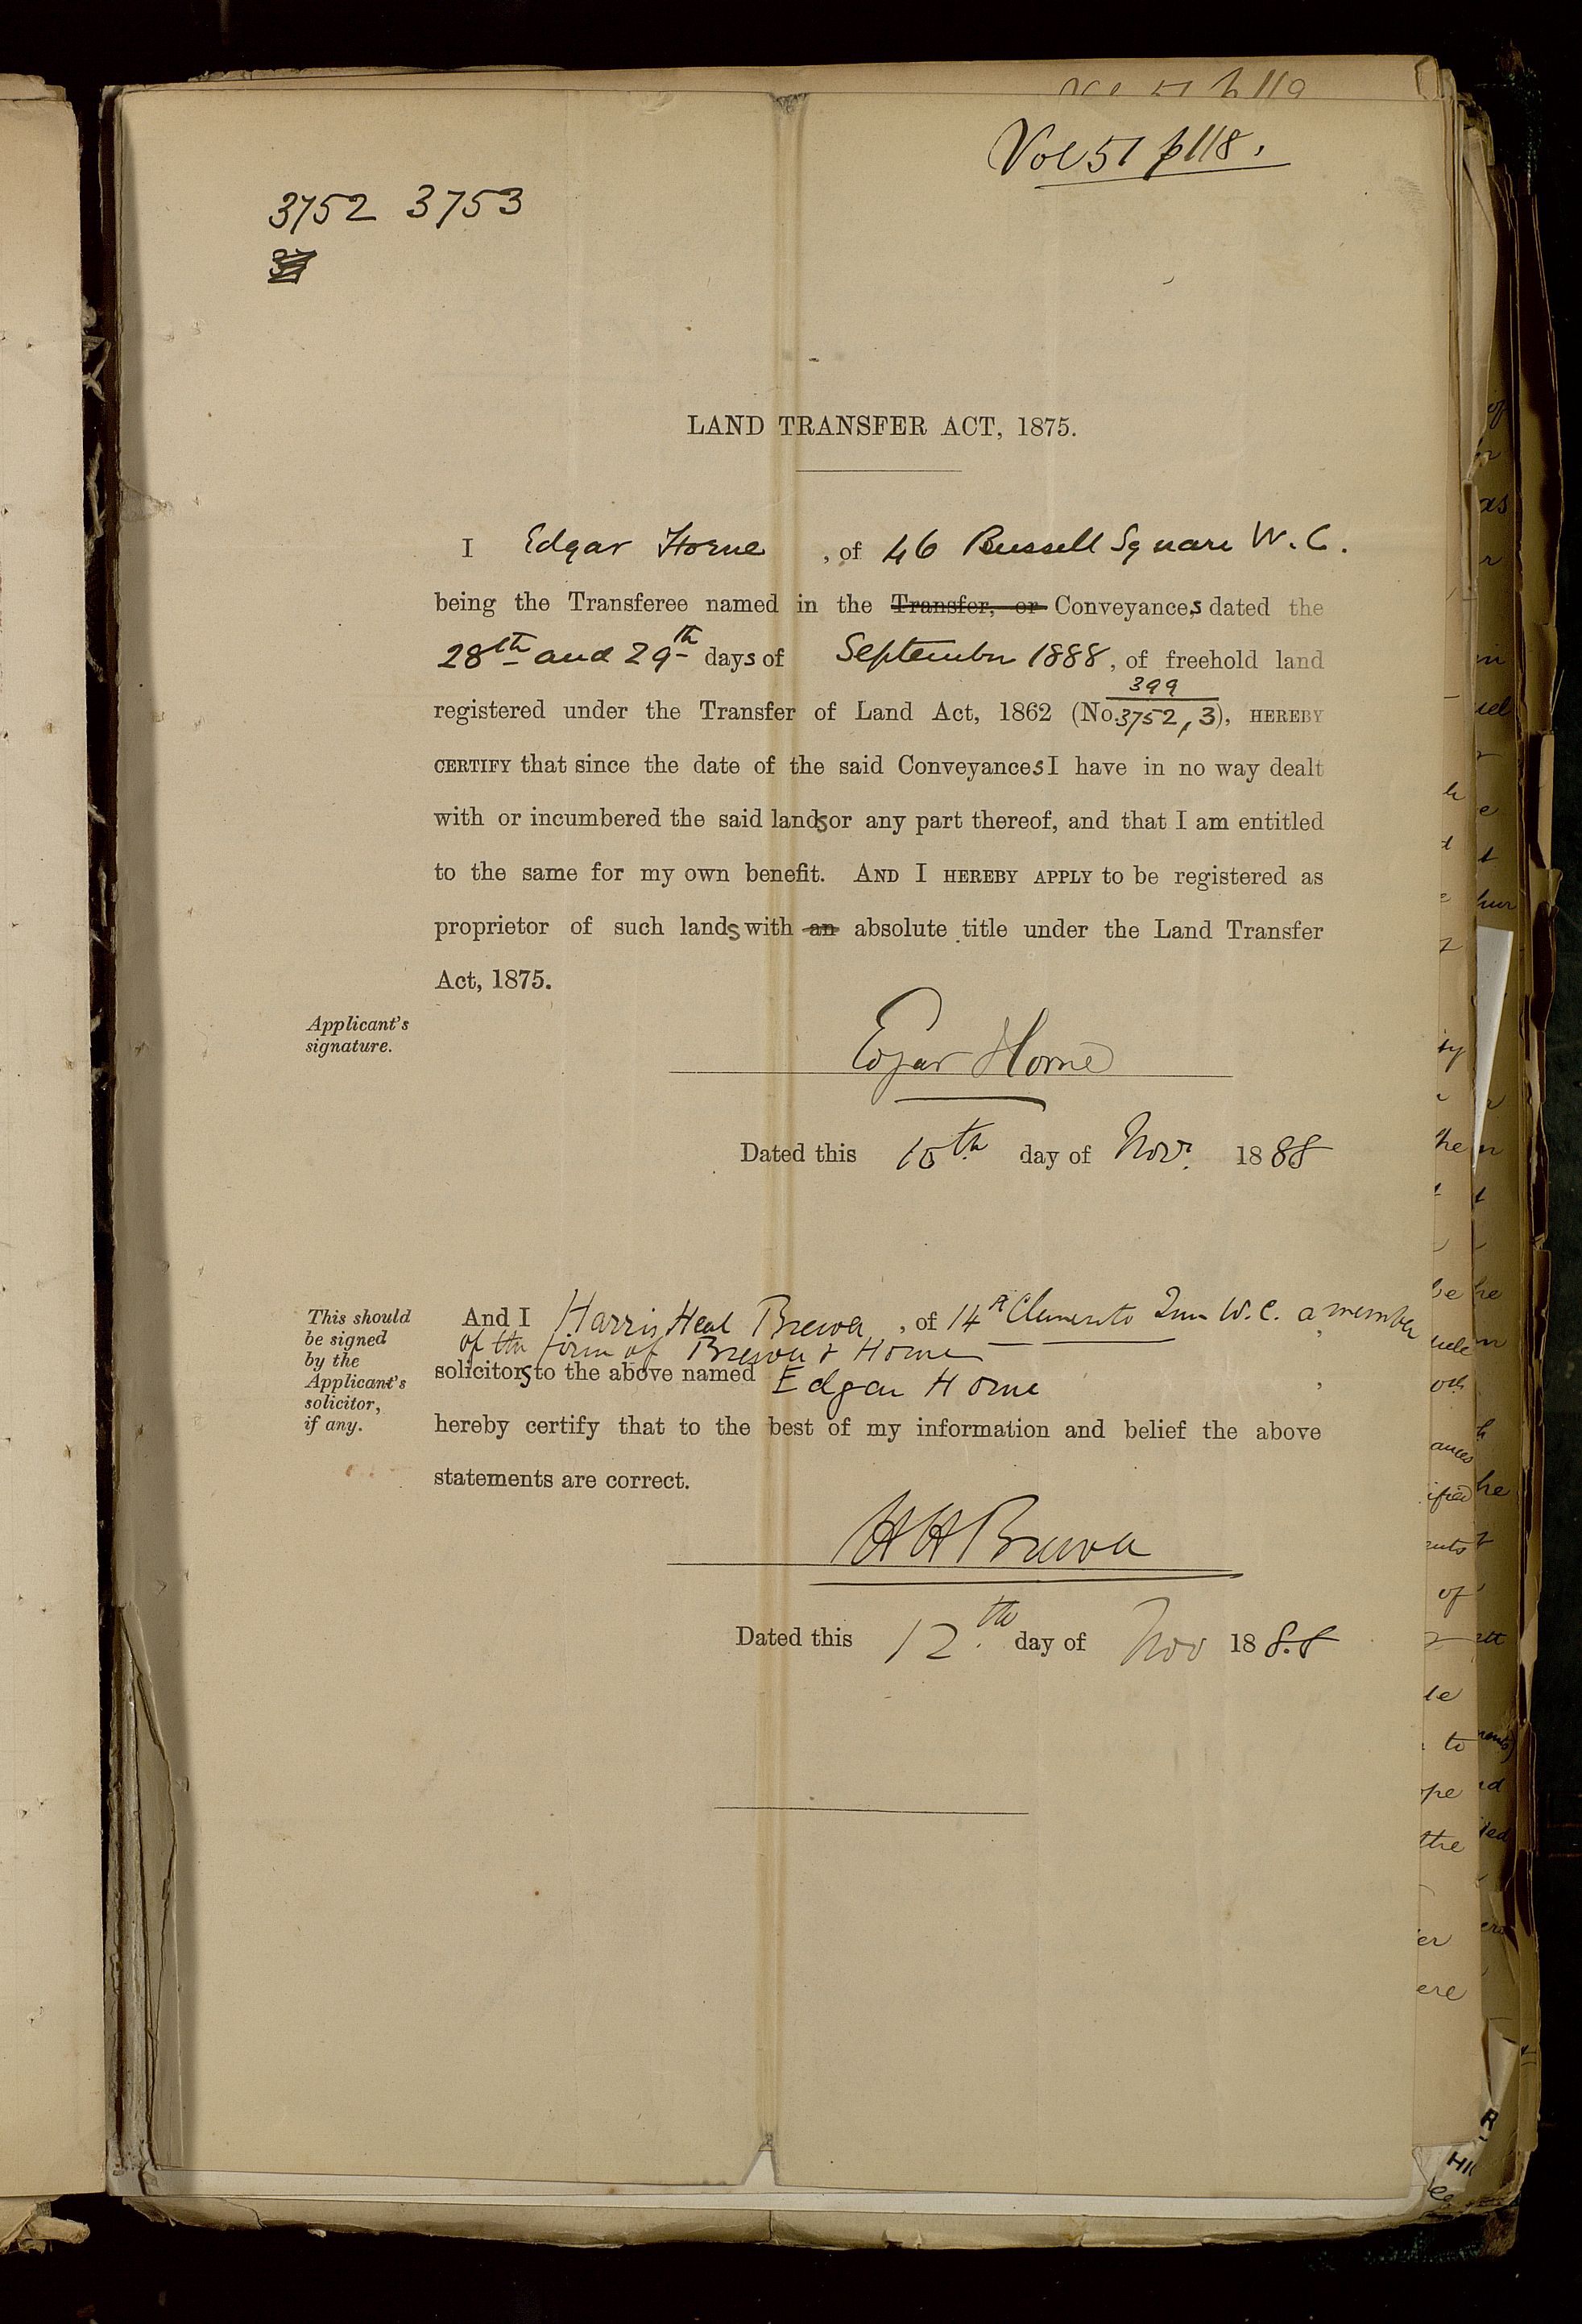 Vol 51 p 118.
3752 3753
LAND TRANSFER ACT, 1875.
I Edgar Horne, of 46 Russell Square W.C.
being the Transferee named in the Transfer, or Conveyances dated the
28th and 29th days of September 1888, of freehold land
399
registered under the Transfer of Land Act, 1862 (No. 3752, 3), HEREBY
CERTIFY that since the date of the said Conveyances I have in no way dealt
with or incumbered the said lands or any part thereof, and that I am entitled
to the same for my own benefit. AND I HEREBY APPLY to be registered as
proprietor of such lands with an absolute title under the Land Transfer
Act, 1875.
Applicant's
signature.
Edgar Horne
Dated this 10th day of Novr. 1888
This should
be signed
by the
Applicant's
solicitor,
if any.
And I Harris Heal, of 14A Clements Inn W.C. a member
of the firm of & Horne
solicitors to the above named Edgar Horne,
hereby certify that to the best of my information and belief the above
statements are correct.
H H
Dated this 12th day of Nov 1888